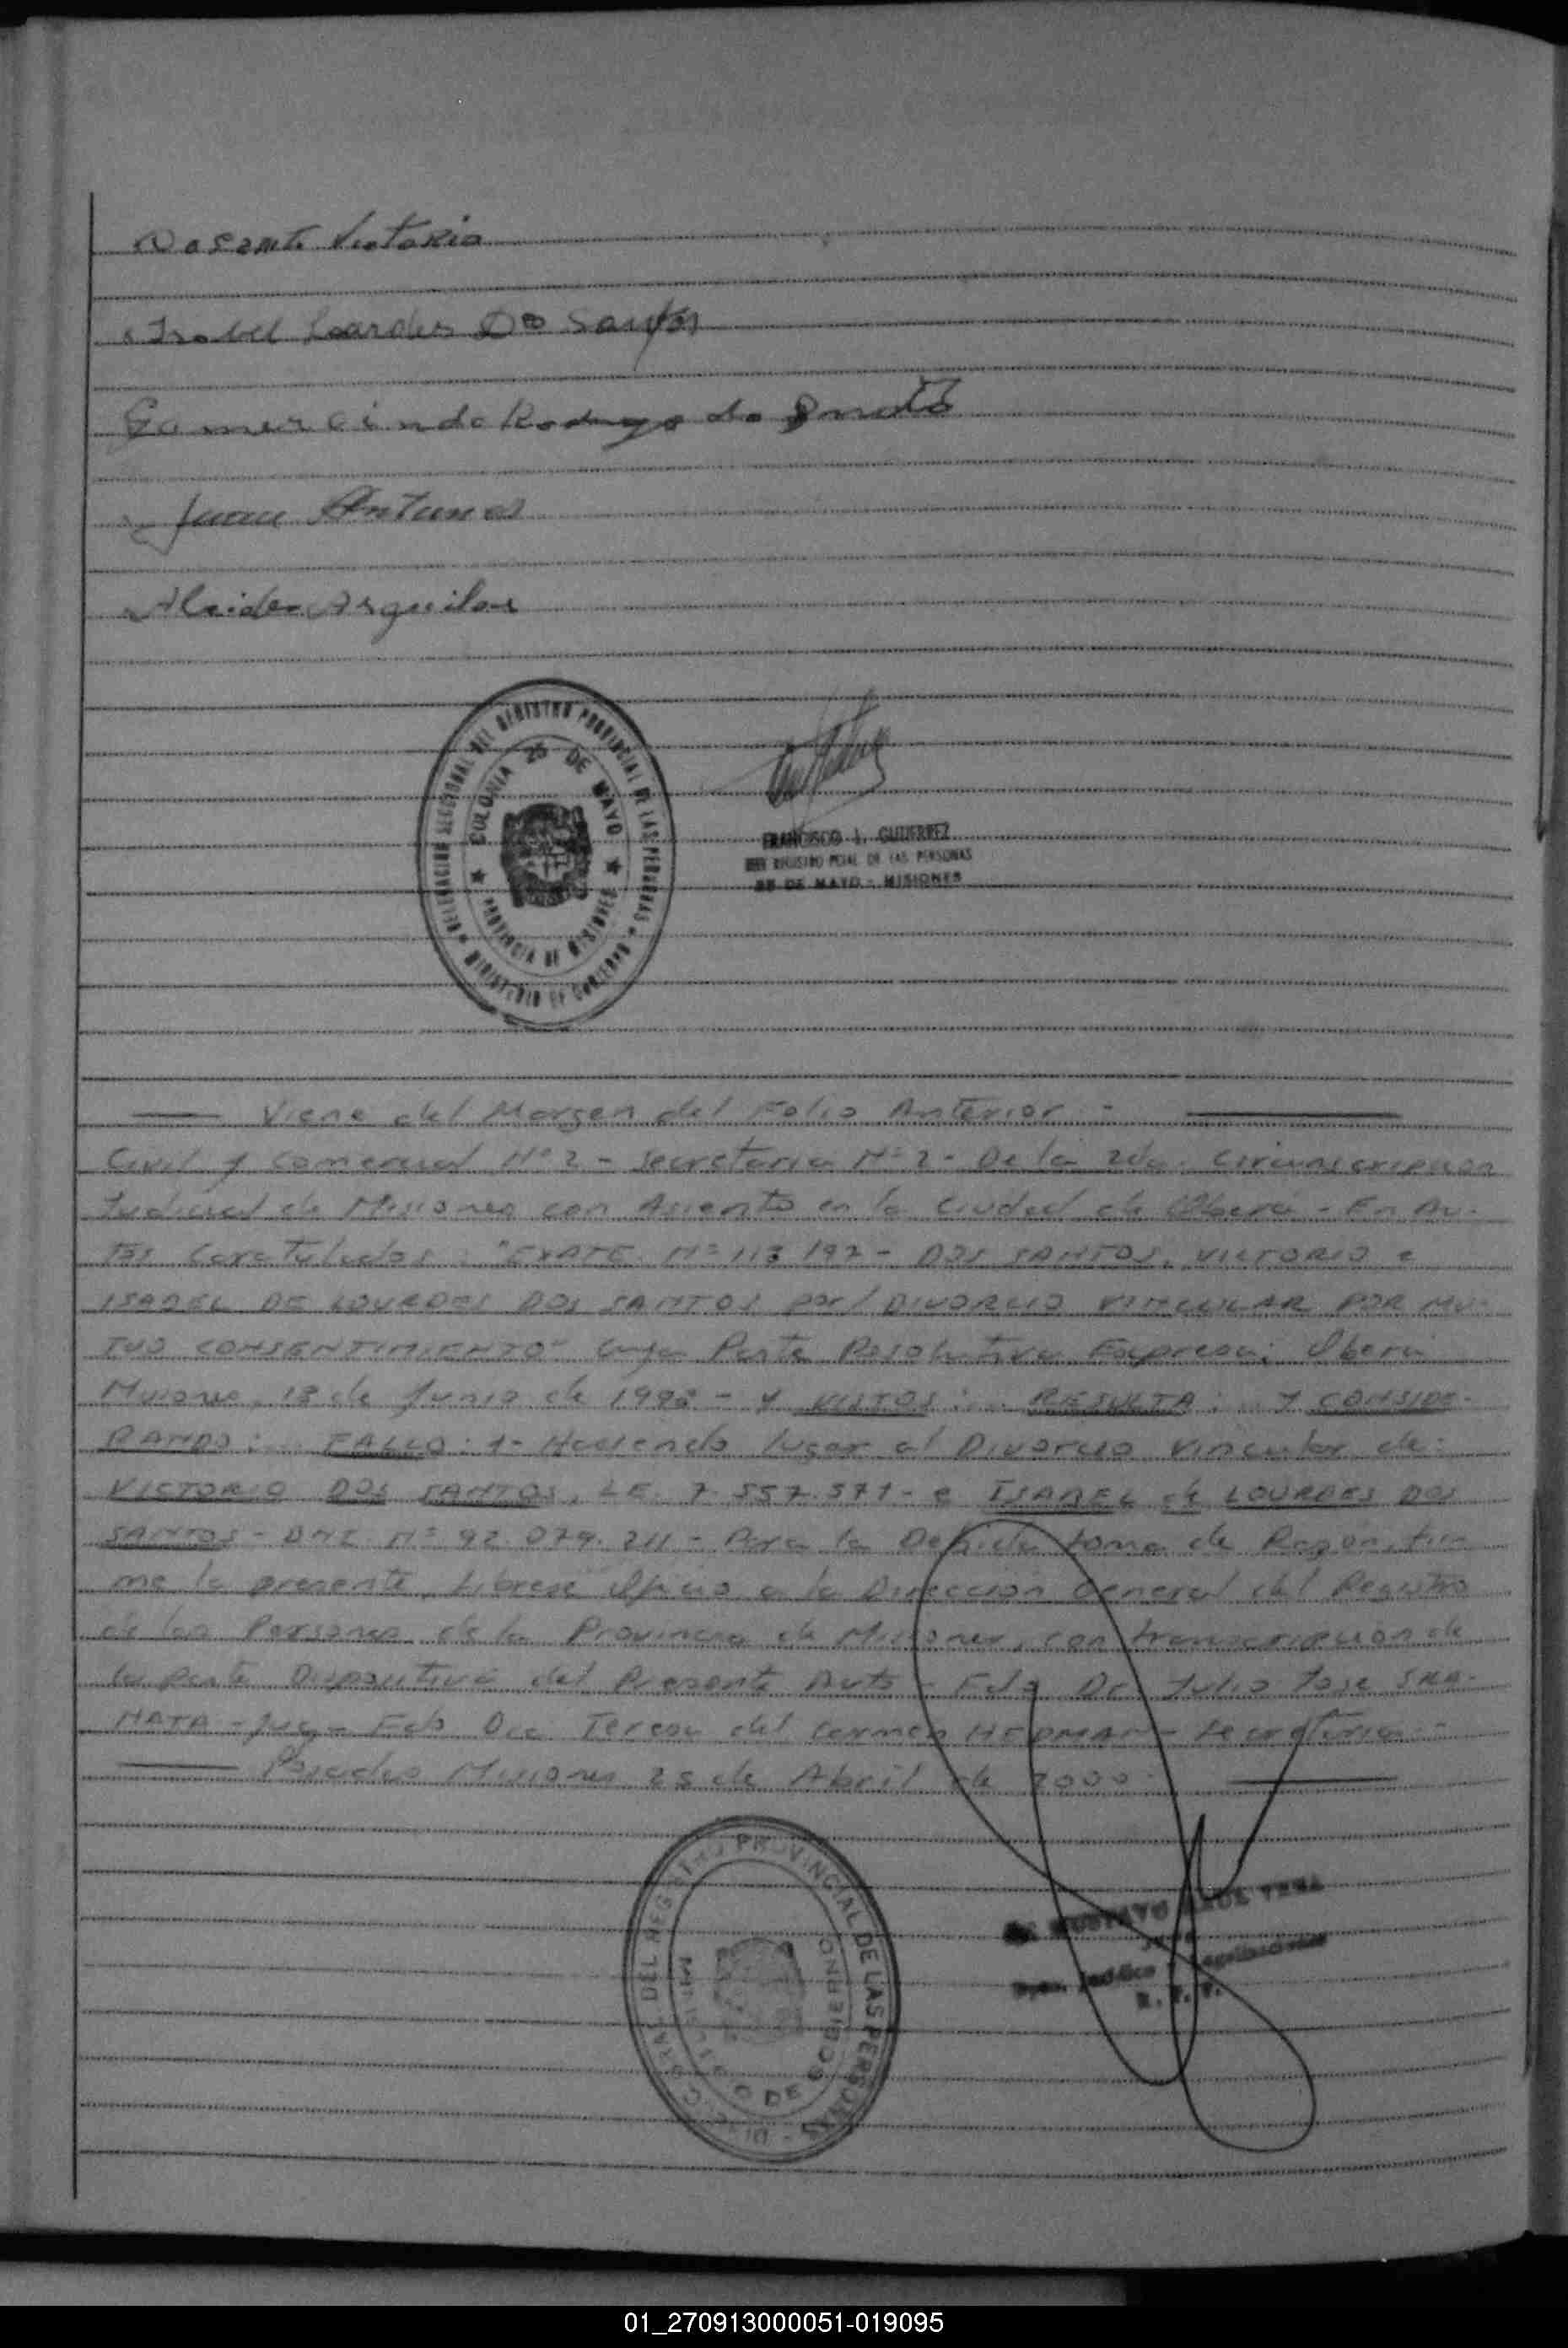 Dosantos Victorio
Isabel Lourdes Do Santos
Gomercindo Rodrigo do
Juan Antunes
Alcides Arguilar
DELEGACION SECCIONAL DEL REGISTRO PROVINCIAL DE LAS PERSONAS
MINISTERIO DE GOBIERNO
COLONIA 25 DE MAYO
PROVINCIA DE MISIONES
FRANCISCO L. GUTIERREZ
REGISTRO PCIAL DE LAS PERSONAS
25 DE MAYO - MISIONES
Viene del Margen del Folio Anterior -
Civil y Comercial Nº 2 - Secretaria Nº 2 - De la 2da. Circunscripcion
Judicial de Misiones con Asiento en la Ciudad de Oberá - En Au-
tos Caratulados: "EXPTE. Nº 113/97 - DOS SANTOS, VICTORIO e
ISABEL DE LOURDES DOS SANTOS por/ DIVORCIO VINCULAR POR MU-
TUO CONSENTIMIENTO" Cuya Parte Resolutiva Expresa: Obera
Misiones, 18 de Junio de 1998 - Y VISTOS: .. RESULTA: .. Y CONSIDE-
RANDO: .. FALLO: 1- Haciendo lugar al Divorcio Vincular de:
VICTORIO DOS SANTOS, LE. 7.557.571 - e ISABEL de LOURDES DOS
SANTOS - DNI. Nº 92.079.211 - Para la Debida toma de Razon, fir-
me la presente, Librese Oficio a la Direccion General del Registro
de las Personas de la Provincia de Misiones, con transcripcion de
la parte Dispositiva del Presente Auto - Fdo Dr. Julio Jose
- Juez - Fdo Dra Teresa del Carmen - Secretaria -
Posadas Misiones 28 de Abril de 2000 -
DIRECC. GRAL. DEL REGISTRO PROVINCIAL DE LAS PERSONAS
MINISTERIO DE GOBIERNO
GUSTAVO
Jefe
Dpto. Jurídico Legalizaciones
R. P. P.
01_270913000051-019095